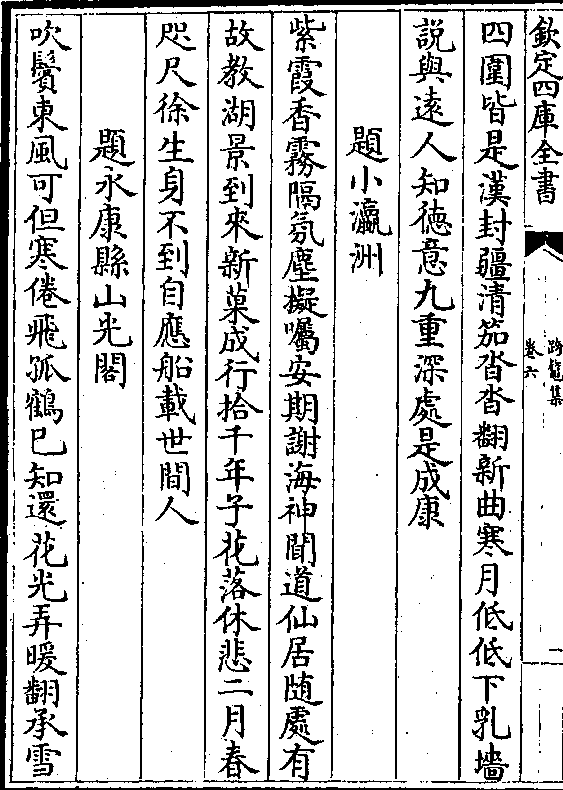 欽定四庫全書
跨鼇集
卷六
一
四圍皆是漢封疆清笳沓沓翻新曲寒月低低下乳墻
説與逺人知徳意九重深處是成康
題小瀛洲
紫霞香霧隔氛塵擬囑安期謝海神聞道仙居随處有
故教湖景到來新菓成行拾千年子花落休悲二月春
咫尺徐生身不到自應船載世間人
題永康縣山光閣
吹鬢東風可但寒倦飛孤鶴已知還花光弄暖翻承雪